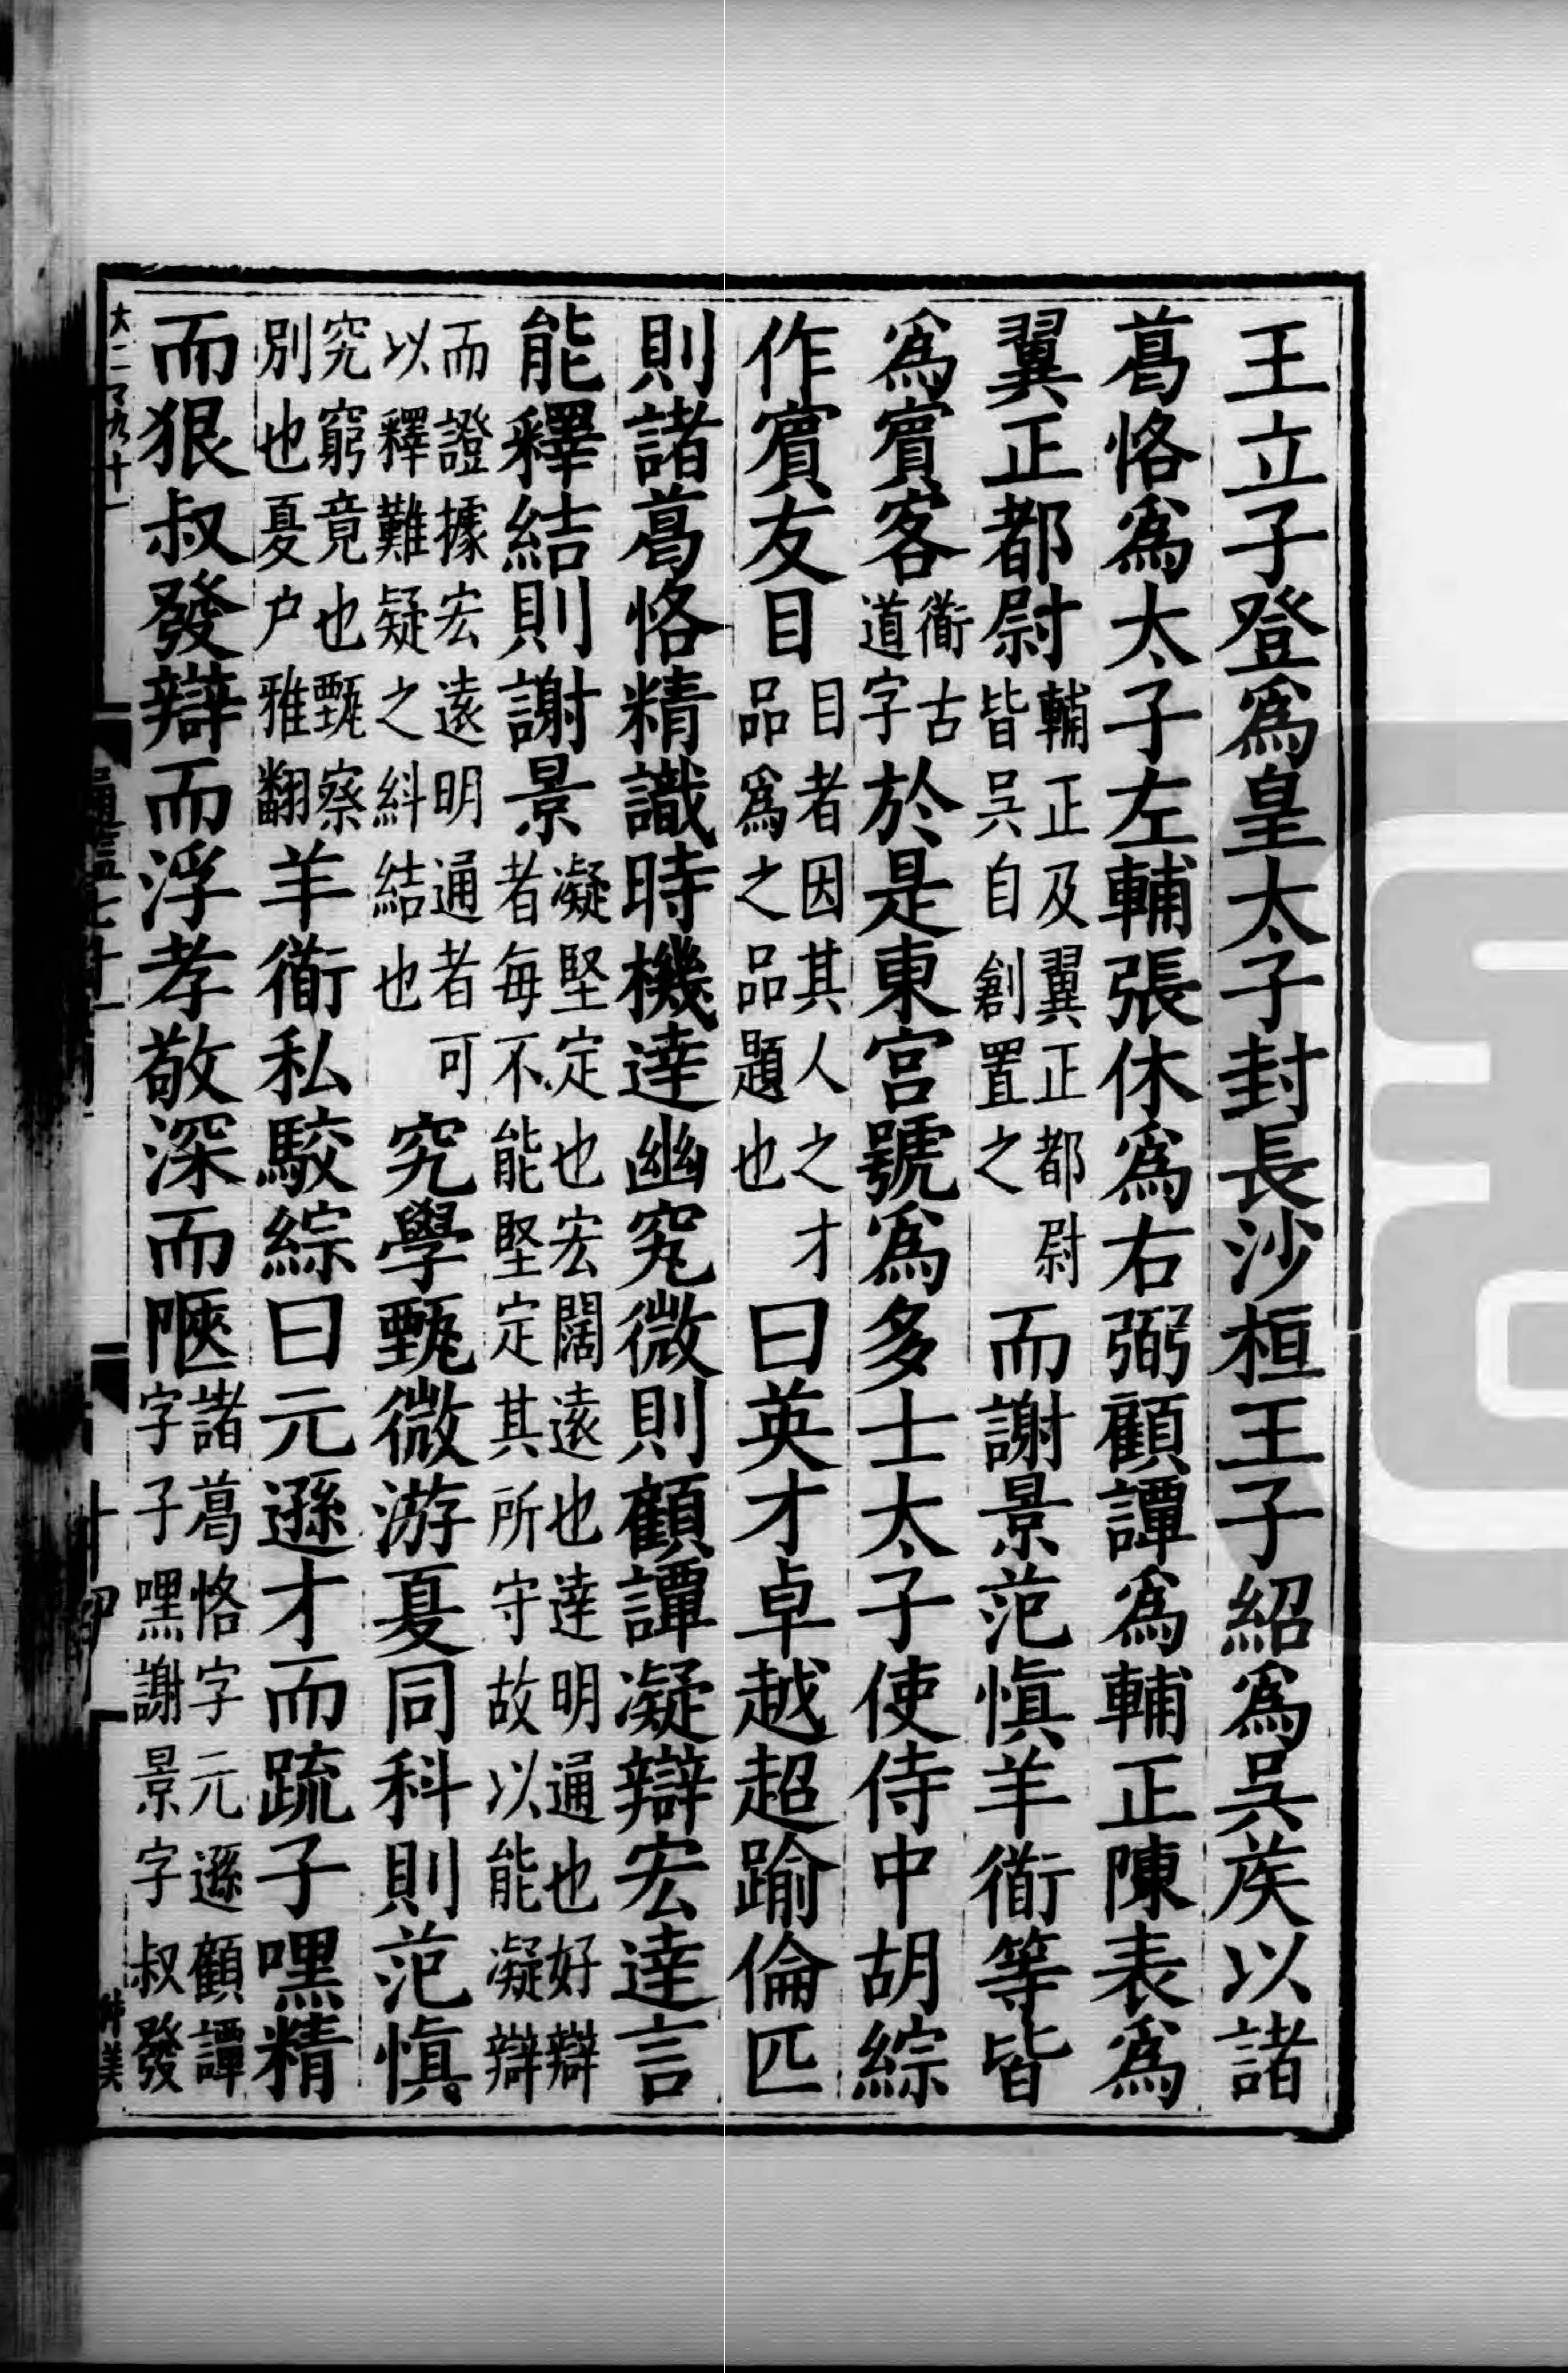 王立子登爲皇太子封長沙桓王子紹爲吳矦以諸
葛恪爲太子左輔張休爲右弼顧譚爲輔正陳表爲
翼正都尉輔正及翼正都尉皆吳自創置之而謝景范愼羊衜等皆
爲賓客衜古道字於是東宮號爲多士太子使侍中胡綜
作賓友目目者因其人之才品爲之品題也曰英才卓越超踰倫匹
則諸葛恪精識時機達幽究微則顧譚凝辯宏達言
能釋結則謝景凝堅定也宏闊遠也達明通也好辯者每不能堅定其所守故以能凝辯
而證據宏遠明通者可以釋難疑之糾結也究學甄微游夏同科則范愼
究窮竟也甄察別也夏户雅翻羊衜私駮綜曰元遜才而疏子嘿精
而狠叔發辯而浮孝敬深而陿諸葛恪字元遜顧譚字子嘿謝景字叔發